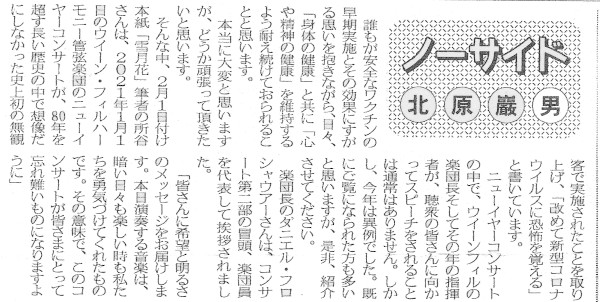 ノーサイド
北原巖男
誰もが安全なワクチンの
早期実施とその効果にすが
る思いを抱きながら、日々、
「身体の健康」と共に「心
や精神の健康」を維持する
よう耐え続けておられるこ
とと思います。
本当に大変と思います
が、どうか頑張って頂きた
いと思います。
そんな中、2月1日付け
本紙「雪月花」筆者の所谷
さんは、2021年1月1
日のウイーン・フィルハー
モニー管弦楽団のニューイ
ヤーコンサートが、80年を
超す長い歴史の中で想像だ
にしなかった史上初の無観
客で実施されたことを取り
上げ、「改めて新型コロナ
ウイルスに恐怖を覚える」
と書いています。
ニューイヤーコンサート
の中で、ウイーンフィルの
楽団長そしてその年の指揮
者が、聴衆の皆さんに向か
ってスピーチをされること
は通常はありません。しか
し、今年は異例でした。既
にご覧になられた方も多い
と思いますが、是非、紹介
させてください。
楽団長のダニエル・フロ
シャウアーさんは、コンサ
ート第二部の冒頭、楽団員
を代表して挨拶されまし
た。
「皆さんに希望と明るさ
のメッセージをお届けしま
す。本日演奏する音楽は、
暗い日々も楽しい時も私た
ちを勇気づけてくれたもの
です。その意味で、このコ
ンサートが皆さまにとって
忘れ難いものになりますよ
うに」